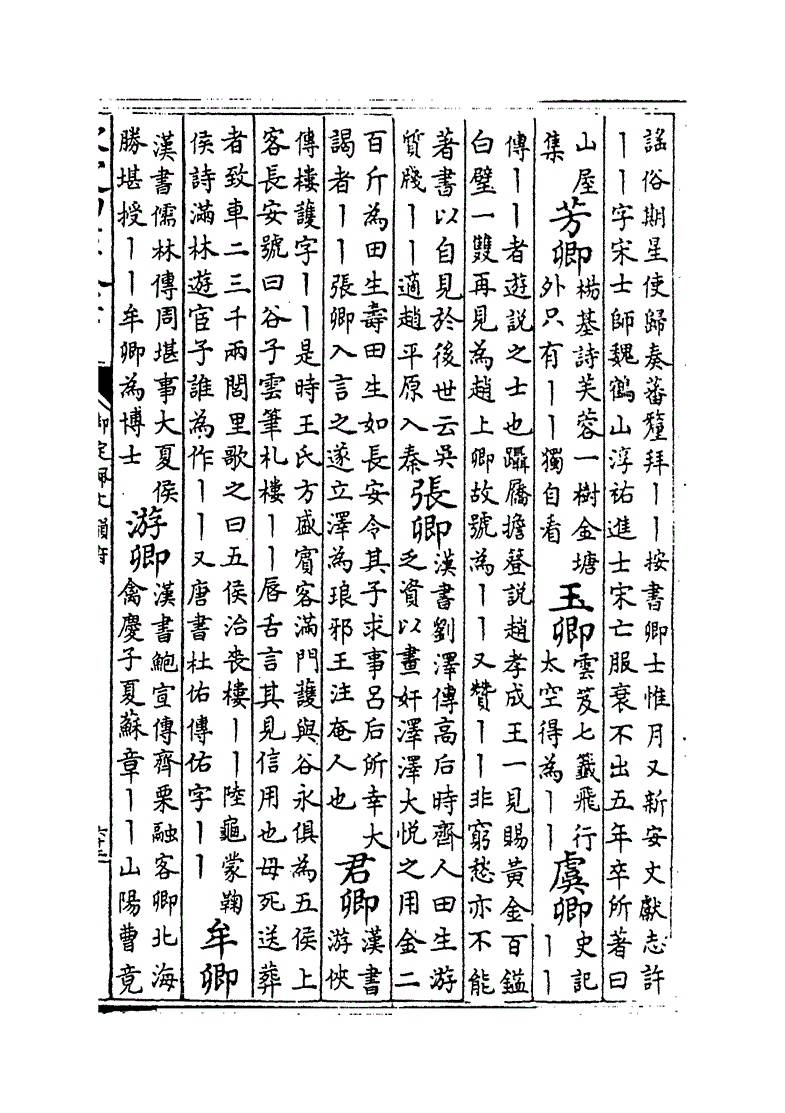 謠俗期星使歸奏蕃釐拜丨丨按書卿士惟月又新安文獻志許
丨丨字宋士師魏鶴山淳祐進士宋亡服衰不出五年卒所著曰
山屋
集
芳卿
楊基詩芙蓉一樹金塘
外只有丨丨獨自看
玉卿
雲笈七籤飛行
太空得為丨丨
虞卿
史記
丨丨
傳丨丨者遊說之士也躡屩擔簦說趙孝成王一見賜黃金百鎰
白璧一雙再見為趙上卿故號為丨丨又贊丨丨非窮愁亦不能
著書以自見於後世云吳
質牋丨丨適趙平原入秦
張卿
漢書劉澤傳高后時齊人田生游
乏資以畫奸澤澤大悅之用金二
百斤為田生壽田生如長安令其子求事呂后所幸大
謁者丨丨張卿入言之遂立澤為琅邪王注奄人也
君卿
漢書
游俠
傳樓護字丨丨是時王氏方盛賓客滿門護與谷永俱為五侯上
客長安號曰谷子雲筆札樓丨丨唇舌言其見信用也母死送葬
者致車二三千兩閭里歌之曰五侯治喪樓丨丨陸龜蒙鞠
侯詩滿林遊宦子誰為作丨丨又唐書杜佑傳佑字丨丨
牟卿
漢書儒林傳周堪事大夏侯
勝堪授丨丨牟卿為博士
游卿
漢書鮑宣傳齊栗融客卿北海
禽慶子夏蘇章丨丨山陽曹竟
御定佩文韻府